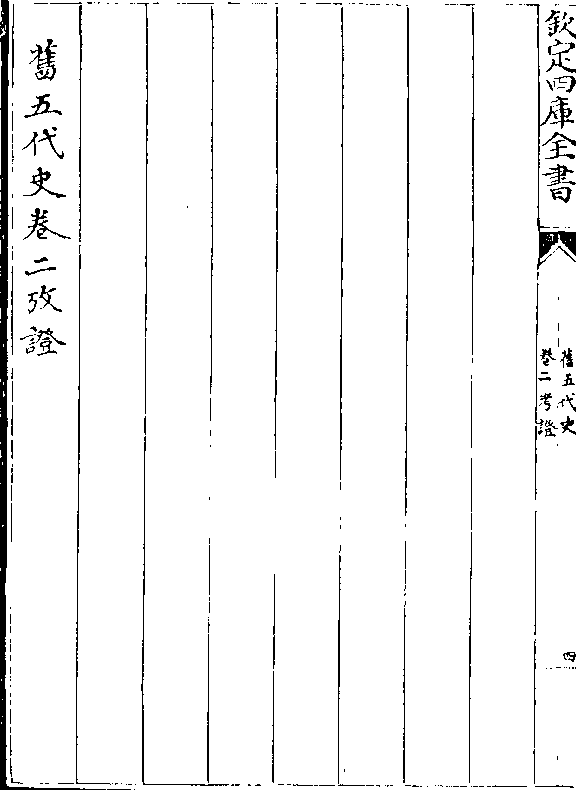 欽定四庫全書
舊五代史
卷二考證
四
舊五代史卷二攷證